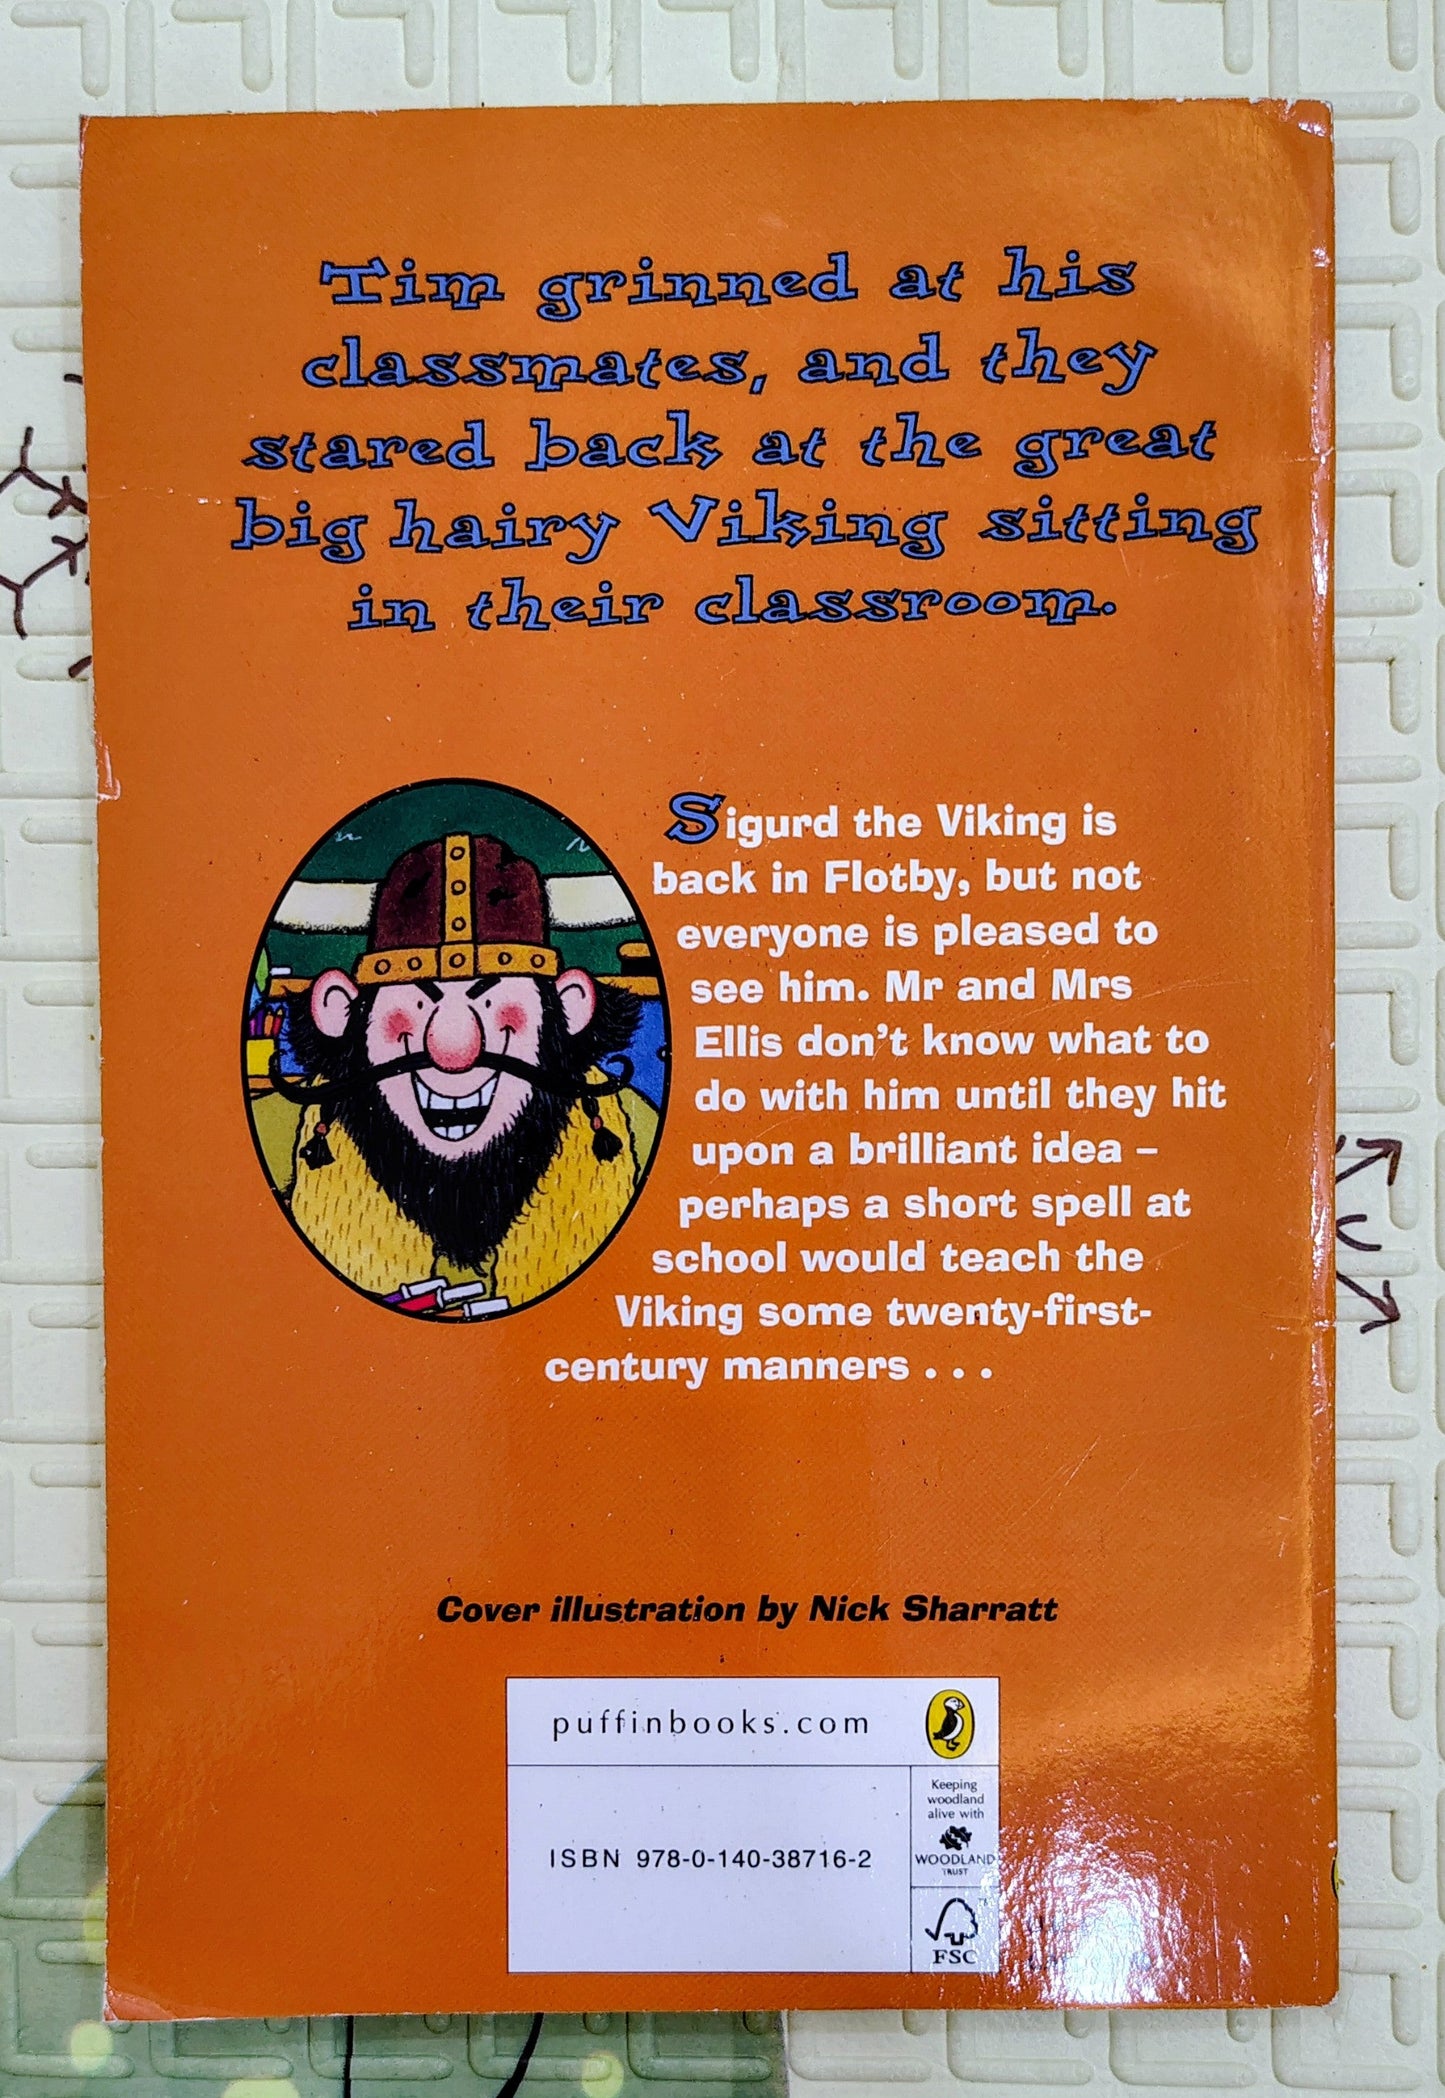 Tim grinned at his
classmates, and they
stared back at the great
big hairy Viking sitting
in their classroom.
Sigurd the Viking is
back in Flotby, but not
everyone is pleased to
see him. Mr and Mrs
Ellis don't know what to
do with him until they hit
upon a brilliant idea –
perhaps a short spell at
school would teach the
Viking some twenty-first-
century manners . . .
Cover illustration by Nick Sharratt
puffinbooks.com
Keeping
woodland
alive with
WOODLAND
TRUST
ISBN 978-0-140-38716-2
FSC